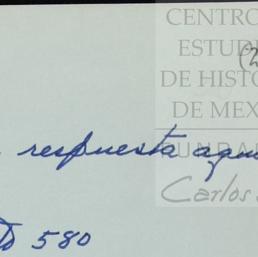 CENTRO
ESTUD
DE HISTO
DE MEX
(2
respuesta aque
FUNDA
Carlos
to 580